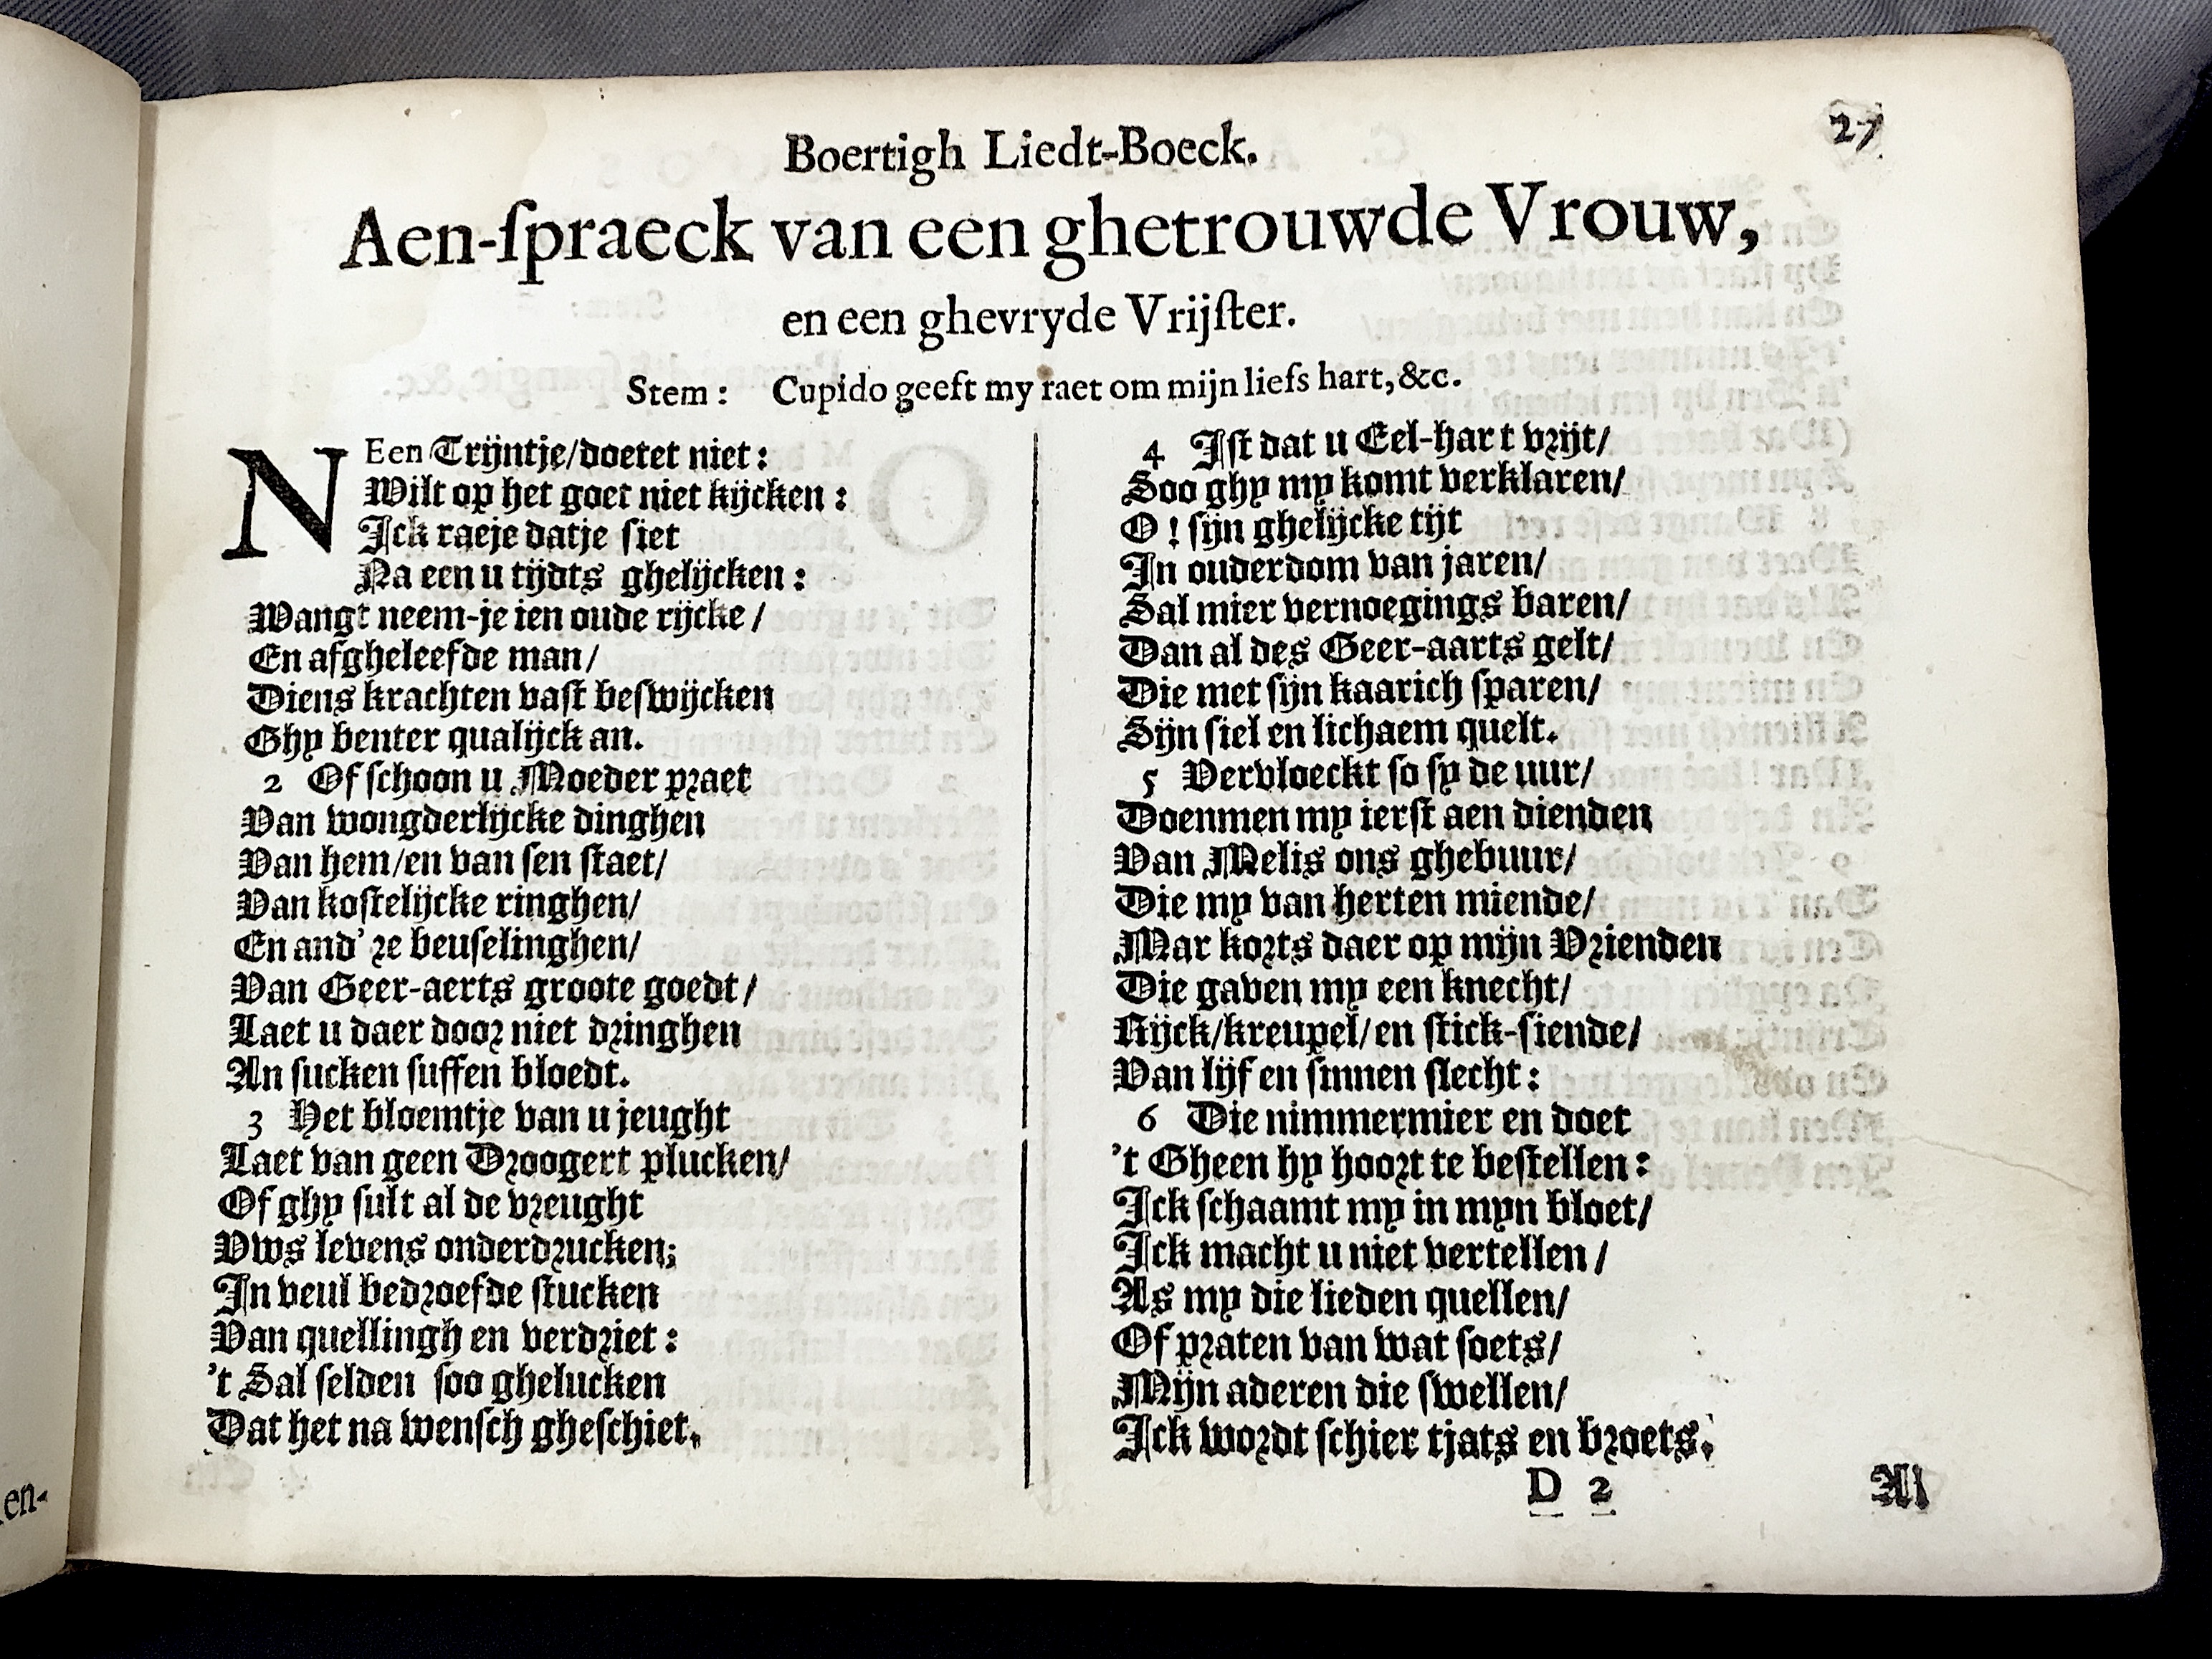 27
Boertigh Liedt-Boeck.
Aen-ſpraeck van een ghetrouwde Vrouw,
en een ghevryde Vrijſter.
Stem: Cupido geeft my raet om mijn liefs hart, &c.
NEen Trijntje/doetet niet:
Wilt op het goet niet kijcken:
Ick raeje datje ſiet
Na een u tijdts ghelijcken:
Wangt neem-je ien oude rijcke/
En afgheleefde man/
Diens krachten vaſt beſwijcken
Ghy benter qualijck an.
2 Of ſchoon u Moeder praet
Van wongderlijcke dinghen
Van hem/en van ſen ſtaet/
Van koſtelijcke ringhen/
En and're beuſelinghen/
Van Geer-aerts groote goedt/
Laet u daer door niet dringhen
An ſucken ſuffen bloedt.
3 Het bloemtje van u jeught
Laet van geen Droogert plucken/
Of ghy ſult al de vreught
Vws levens onderdrucken;
In veul bedroefde ſtucken
Van quellingh en verdriet:
't Sal ſelden ſoo ghelucken
Dat het na wenſch gheſchiet.
4 Iſt dat u Eel-hart vrijt/
Soo ghy my komt verklaren/
O! ſijn ghelijcke tijt
In ouderdom van jaren/
Sal mier vernoegings baren/
Dan al des Geer-aarts gelt/
Die met ſijn kaarich ſparen/
Sijn ſiel en lichaem quelt.
5 Vervloeckt ſo ſy de uur/
Doenmen my ierſt aen dienden
Van Melis ons ghebuur/
Die my van herten miende/
Mar korts daer op mijn Vrienden
Die gaven my een knecht/
Rijck/kreupel/en ſtick-ſiende/
Van lijf en ſinnen ſlecht:
6 Die nimmermier en doet
't Gheen hy hoort te beſtellen:
Ick ſchaamt my in myn bloet/
Ick macht u niet vertellen/
As my die lieden quellen/
Of praten van wat ſoets/
Mijn aderen die ſwellen/
Ick wordt ſchier tjats en broets.
D 2
Al
en-